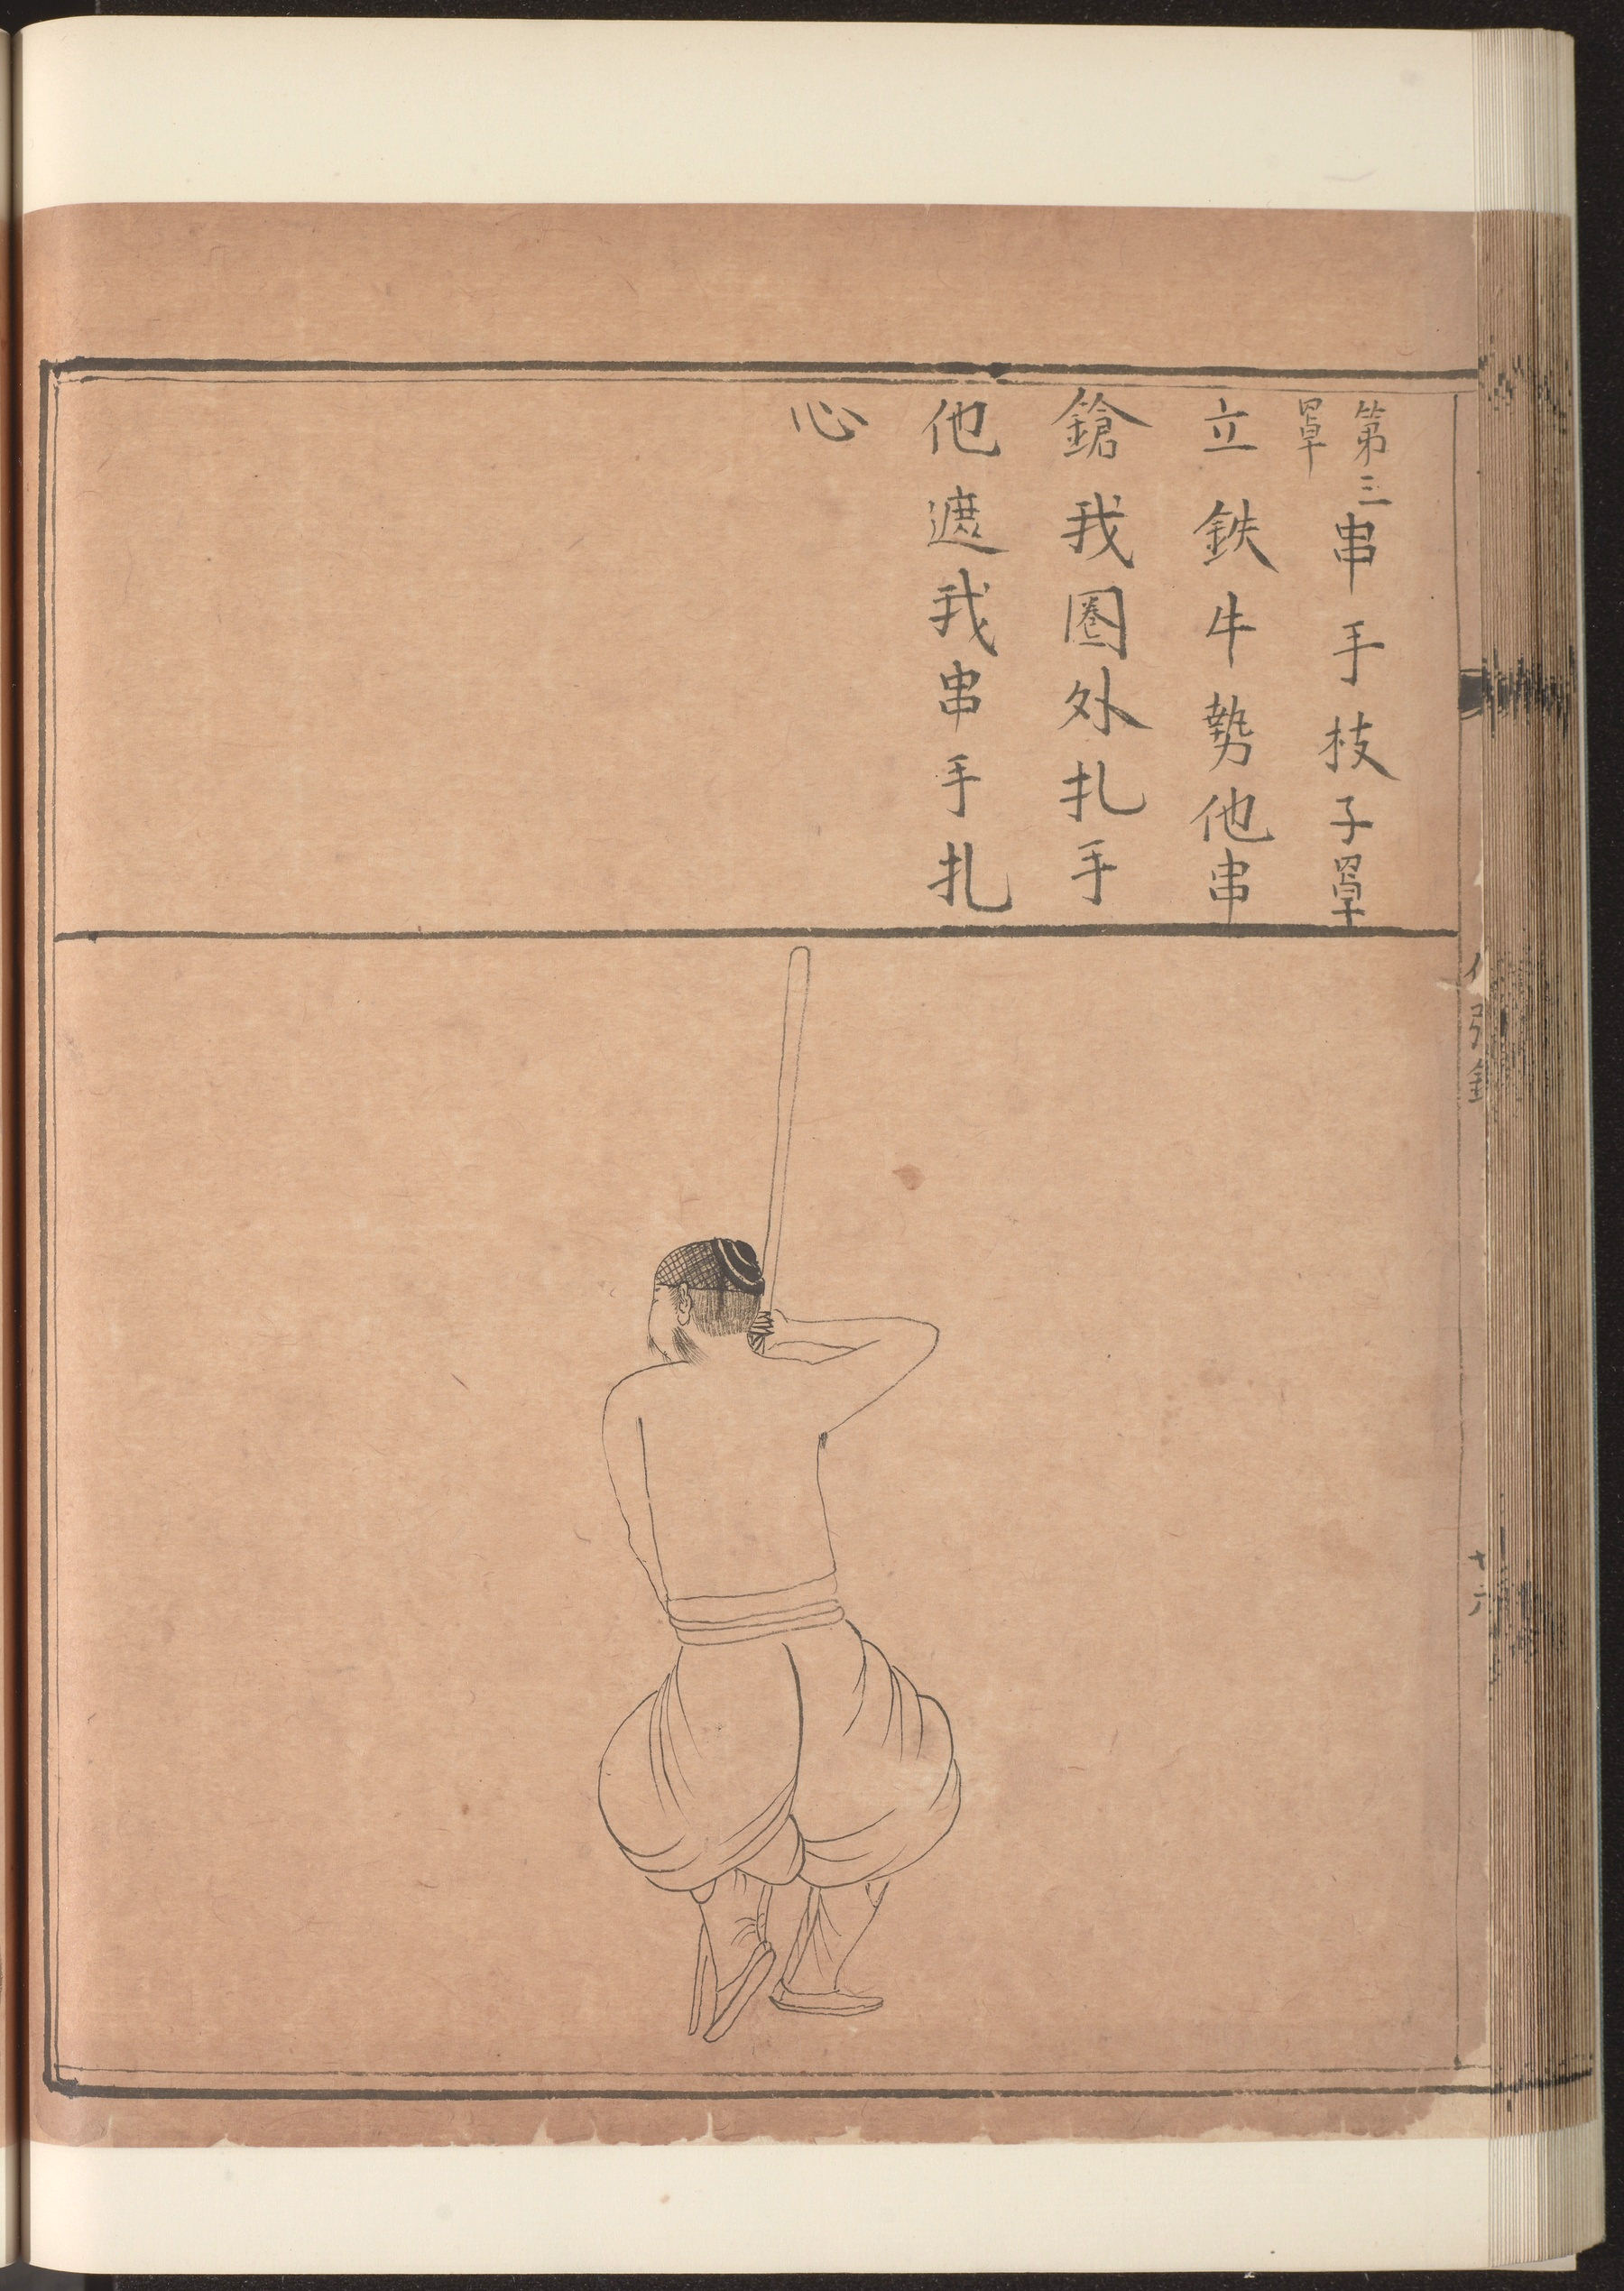 第三
罩
串手枝子罩
立鉄牛勢他串
鎗我圈外扎手
他遮我串手扎
心